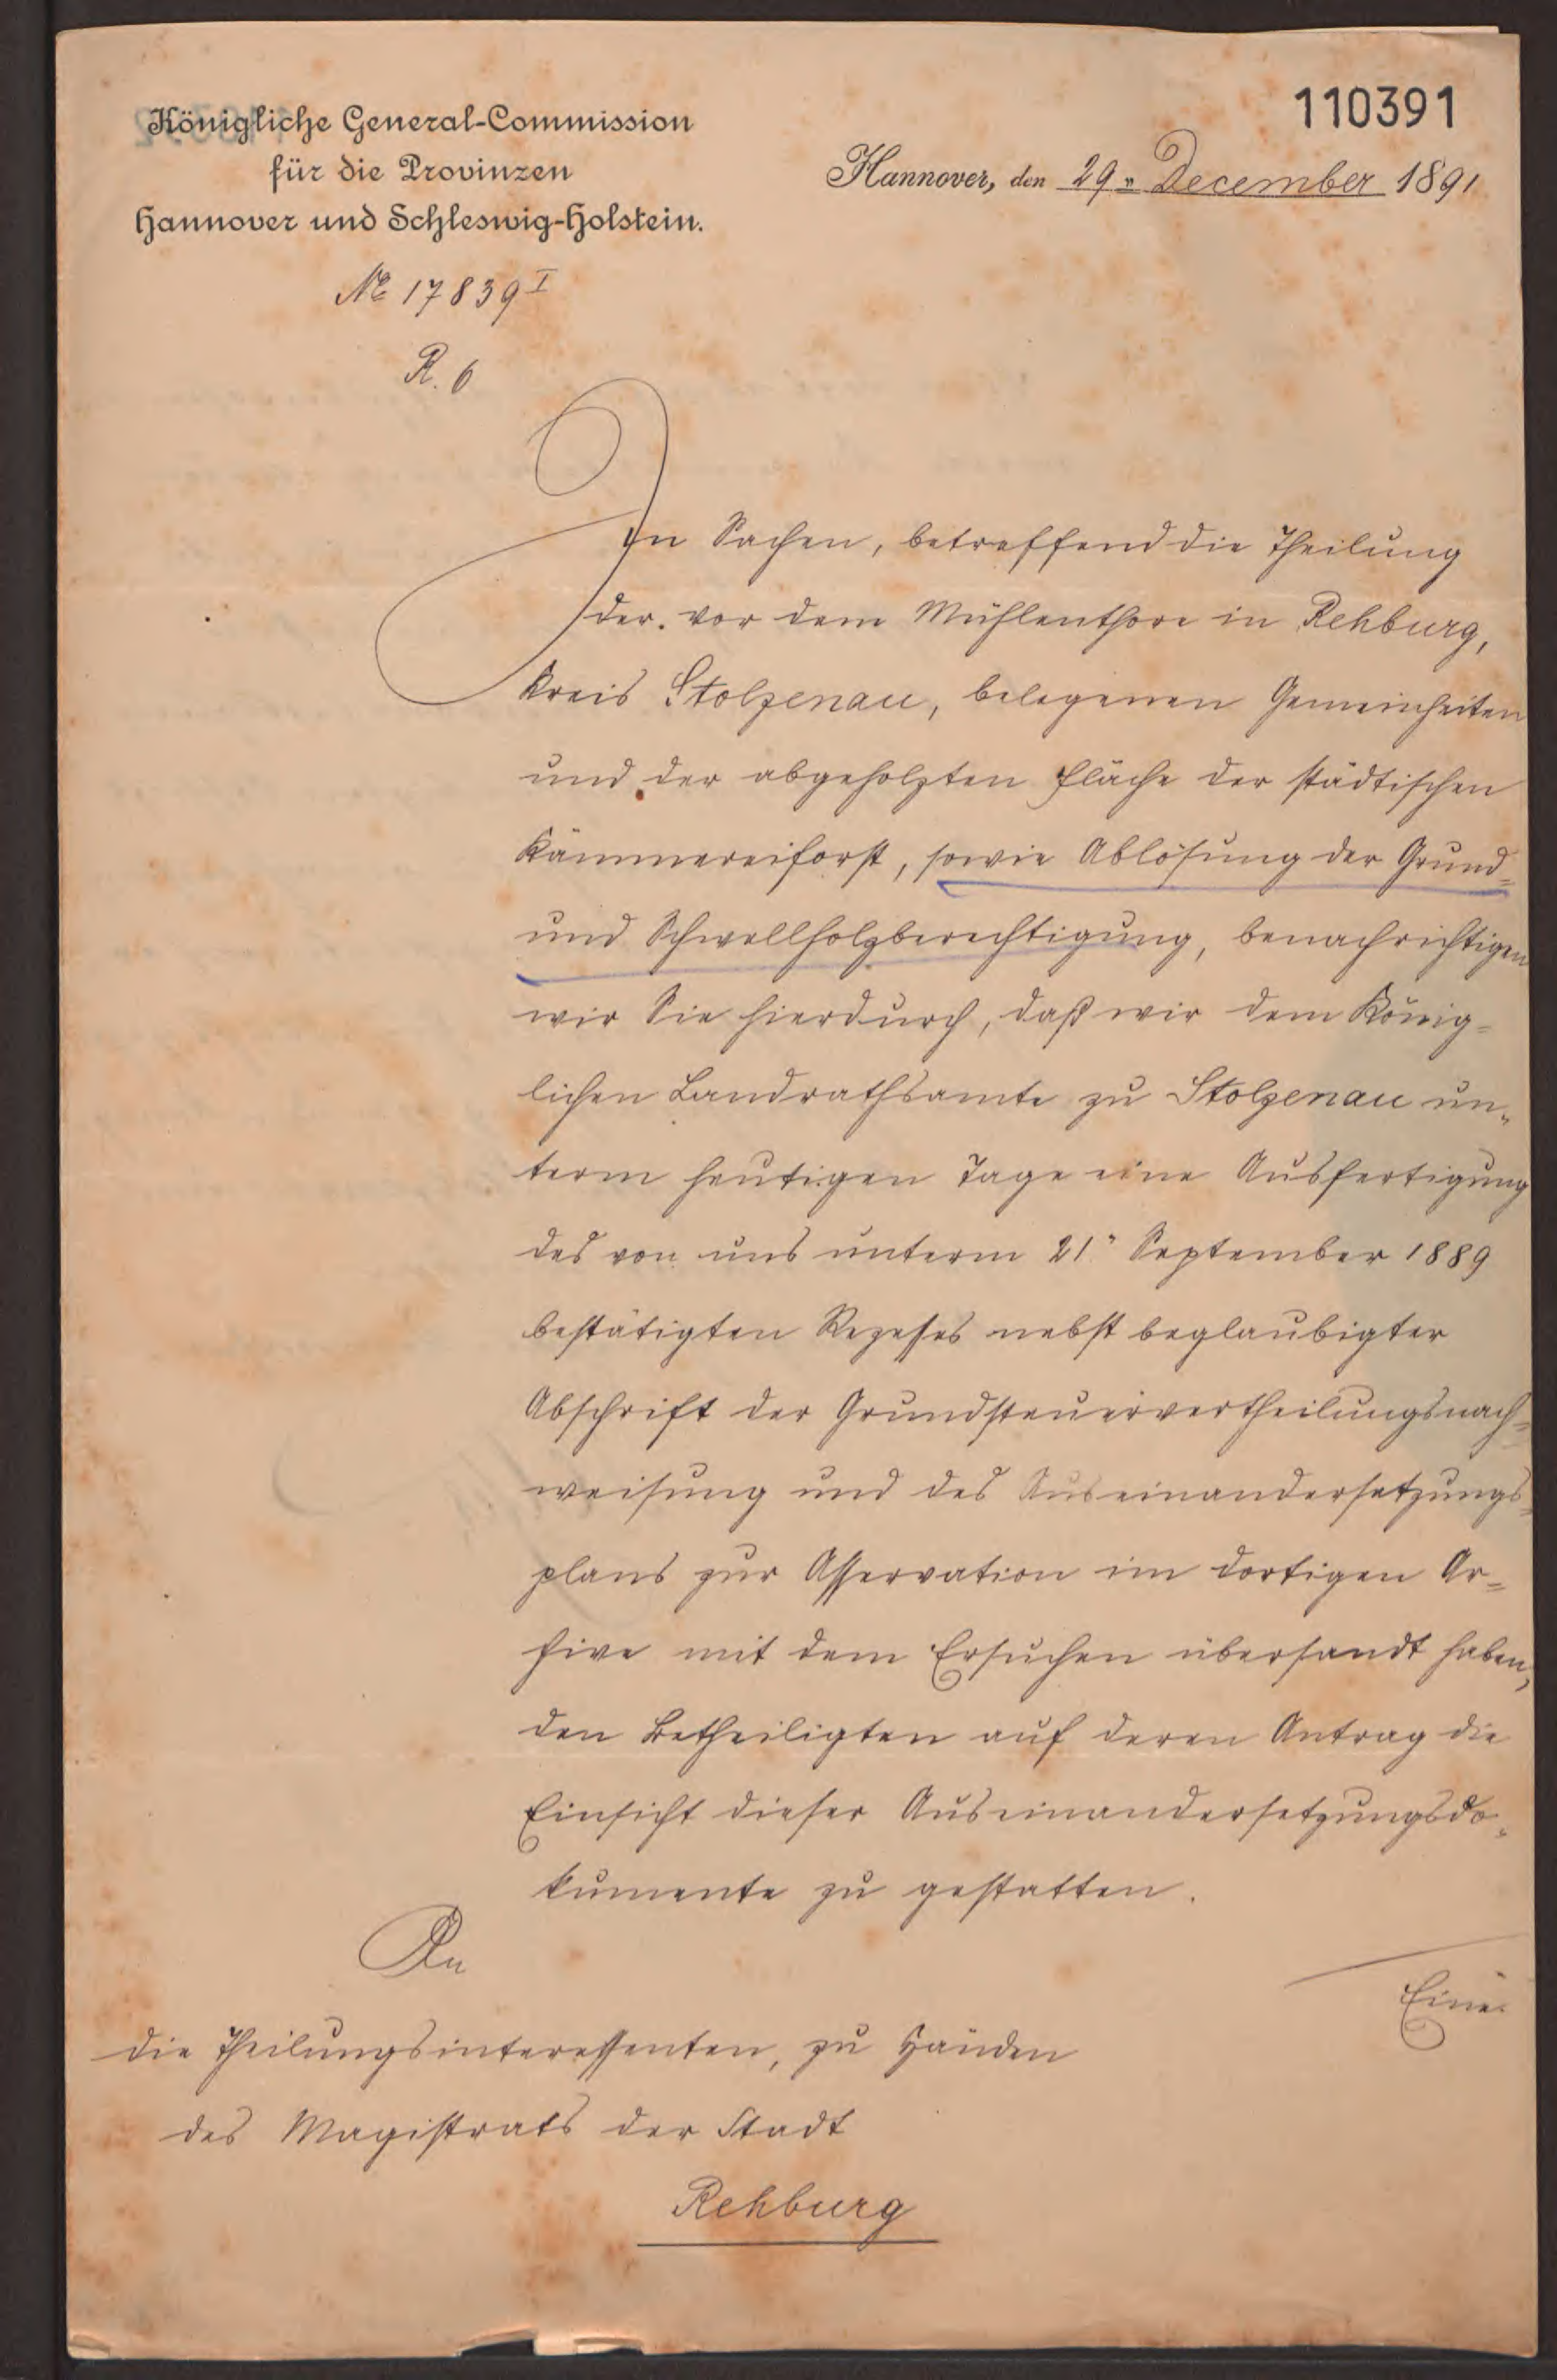 110391
Königliche General-Commission
für die Provinzen
Hannover und Schleswig-Holstein.
Hannover, den 29ⁿ December 1891
№ 17839 I
R. 6
In Sachen, betreffend die Theilung
der vor dem Mühlenthore in Rehburg,
Kreis Stolzenau, belegenen Gemeinheiten
und der abgeholzten Fläche der städtischen
Kämmereiforst, sowie Ablösung der Grund-
und Schwellholzberechtigung, benachrichtigen
wir Sie hierdurch, daß wir dem König-
lichen Landrathsamte zu Stolzenau un-
term heutigen Tage eine Ausfertigung
des von uns unterm 21ⁿ September 1889
bestätigten Rezesses nebst beglaubigter
Abschrift der Grundsteuervertheilungsnach-
weisung und des Auseinandersetzungs-
plans zur Asservation im dortigen Ar-
hive mit dem Ersuchen übersandt haben,
den Betheiligten auf deren Antrag die
Einsicht dieser Auseinandersetzungsdo-
kumente zu gestatten.
Eine
An
die Theilungsinteressenten, zu Händen
des Magistrats der Stadt
Rehburg